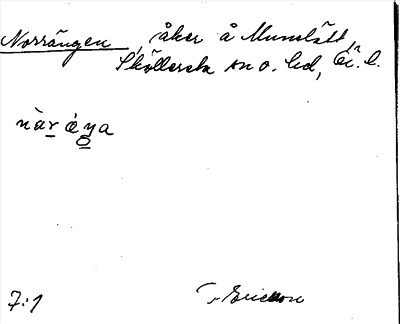 Norrängen, åker å Mumslätt,
Sköllersta sn o. hd, Ör. l.
nàr ǽŋa
7:1 Ericson